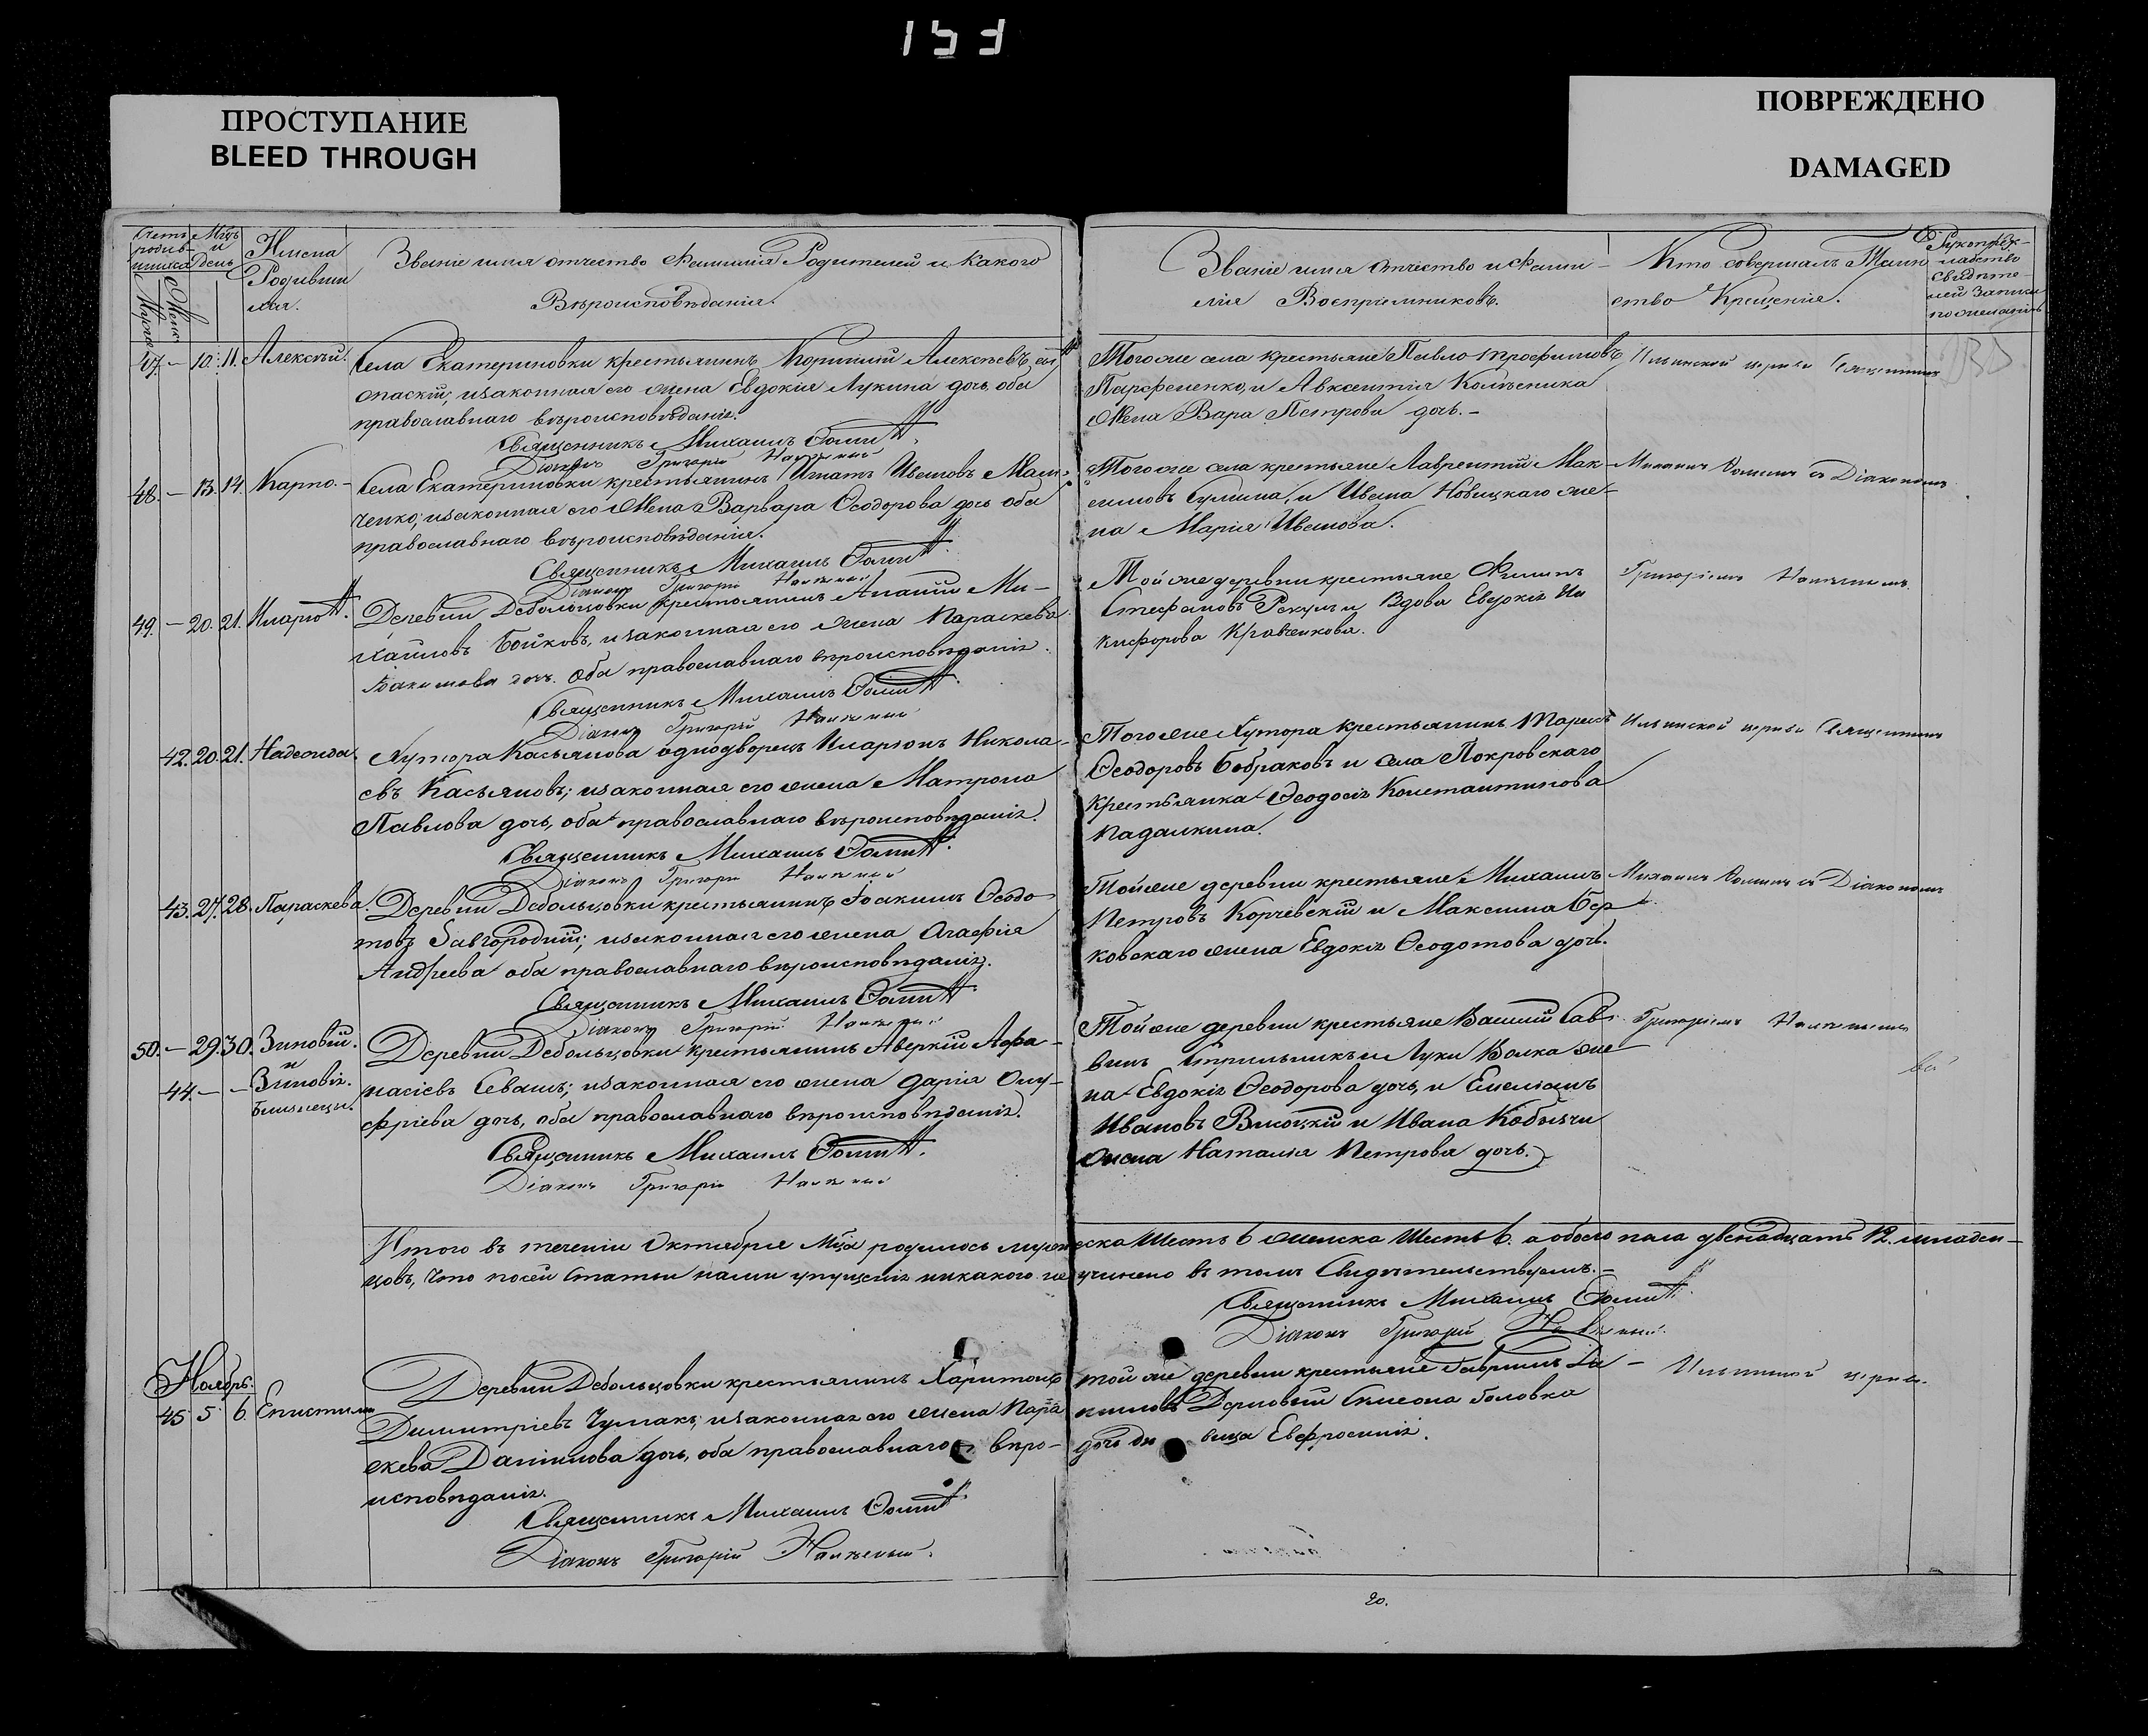 153
ПРОСТУПАНИЕ
BLEED THROUGH
ПОВРЕЖДЕНО
DAMAGED
Счетъ родив-шихся
Муж. Женс.
Мцъ и день
Имена Родившихся.
Званіе имя отчество Фамилія Родителей и какого
Вѣроисповѣданія.
Званіе имя отчество и Фами-
лія Воспріемниковъ.
Кто совершалъ Таин
ство Крещенія.
Рукоприк-
ладство
Свидѣте-
лей Записи
по желанію
47. – 10. 11. Алексѣй.
Села Екатериновки крестьянинъ Корнилій Алексѣевъ
законная его жена Евдокія Лукина дочь оба
православнаго вѣроисповѣданіе.
Священникъ Михаилъ
Діаконъ Григорій
Того же села крестьяне Павло Трофимовъ
Парфененко, и Авксентія Колѣсника
Жена Вара Петрова дочь. –
Ильинской церкви Священникъ
48. – 13. 14. Карпо. –
Села Екатериновки крестьянинъ Игнатъ Ивановъ
ченко; изаконная его Жена Варвара Ѳеодорова дочь оба
православнаго вѣроисповѣданія.
Священникъ Михаилъ
Діаконъ Григорій
Того же села крестьяне Лаврентій Мак-
симовъ Сулима, и Ивана Новицкаго же-
на Марія Иванова.
Михаилъ съ Діакономъ
49. – 20. 21. Иларіонъ.
Деревни Дебольцовки крестьянинъ Ананій Ми-
хайловъ Бойковъ, изаконная его жена Параскева
Іоакимова дочь. Оба православнаго вѣроисповѣданія.
Священникъ Михаилъ
Діаконъ Григорій
Той же деревни крестьяне Филипъ
Стефановъ и Вдова Евдокія Ни
кифорова Кравченкова.
Григоріемъ
42. 20. 21. Надежда.
Хутора Касьянова однодворецъ Иларіонъ Никола-
евъ Касьяновъ; изаконная его жена Матрона
Павлова дочь, оба православнаго вѣроисповѣданія.
Священникъ Михаилъ
Діаконъ Григорій
Того же Хутора крестьянинъ Тарасъ
Ѳеодоровъ Бобраковъ и села Покровскаго
крестьянка Ѳеодосія Константинова
Падалкина.
Ильинской церкви Священникъ
43. 27. 28. Параскева
Деревни Дебольцовки крестьянинъ Іоакимъ Ѳеодо
товъ Завгородній; изаконная его жена Агафія
Андреева оба православнаго вѣроисповѣданія.
Священникъ Михаилъ
Діаконъ Григорій
Той же деревни крестьяне Михаилъ
Петровъ Корчевскій и Максима Бер
ковскаго жена Евдокія Ѳеодотова дочь.
Михаилъ съ Діакономъ
50. – 29. 30. Зиновій.
и
44. – – Зиновія.
близнецы.
Деревни Дебольцовки крестьянинъ Аверкій Афа-
насіевъ Севашъ; изаконная его жена Дарія Ону-
фріева дочь, оба православнаго вѣроисповѣданія.
Священникъ Михаилъ
Діаконъ Григорій
Той же деревни крестьяне Василій Сав
винъ и Луки Волка же
на Евдокія Ѳеодорова дочь, и Емеліанъ
Ивановъ Высоцкій и Ивана
жена Наталія Петрова дочь.
Григоріемъ
Итого въ теченіи Октября Мца родилось мужеска Шесть 6 женска Шесть 6. а обоего пола двенадцать 12. младен-
цовъ, что посей статьи нами упущенія никакого не учинено въ томъ Свидѣтельствуемъ. –
Священникъ Михаилъ
Діаконъ Григорій
Ноябрь.
45 5 6. Епистимія
Деревни Дебольцовки крестьянинъ Харитонъ
Димитріевъ Чумакъ; изаконная его жена Пара
скева Даніилова дочь, оба православнаго вѣро-
исповѣданія.
Священникъ Михаилъ
Діаконъ Григорій
той же деревни крестьяне Гавріилъ
Симеона Головка
дочь девица Евфросинія.
Ильинской церкви
20.